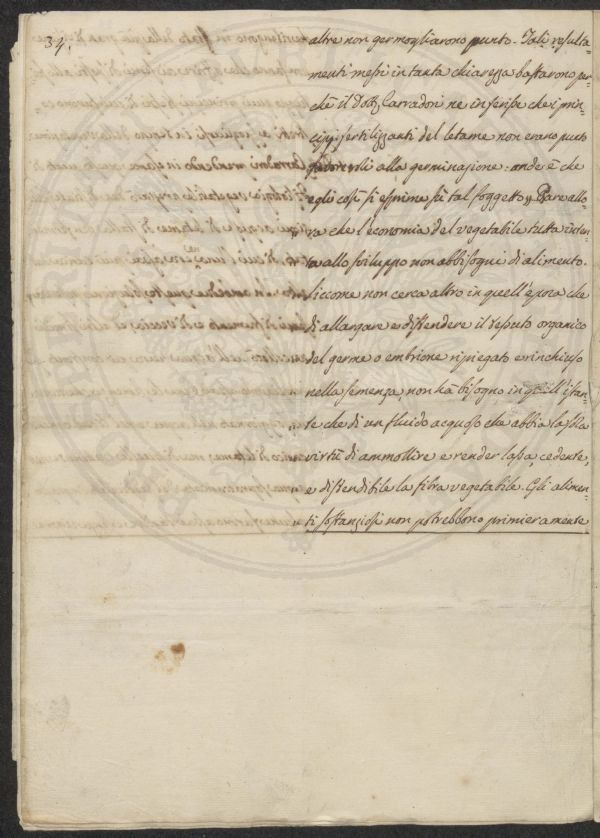 34.
altre non germogliarono punto. Tali resulta-
menti messi in tanta chiarezza bastarono per-
chè il Dott. Carradori ne inferisse che i prin-
cipj fertilizzanti del letame non erano punto
favorevoli alla germinazione: onde è che
egli così si esprime sù tal soggetto „ Pare allo-
„ ra che l'economia del vegetabile tutta inten-
ta allo sviluppo non abbisogni di alimento.
Siccome non cerca altro in quell'epoca che
di allargare e distendere il tessuto organico
del germe o embrione ripiegato e rinchiuso
nella semenza non hà bisogno in quell'istan-
te che di un fluido acquoso che abbia la sola
virtù di ammollire e render lassa, cedente,
e distendibile la fibra vegetabile. Gli alimen-
ti sostanziosi non potrebbono primieramente